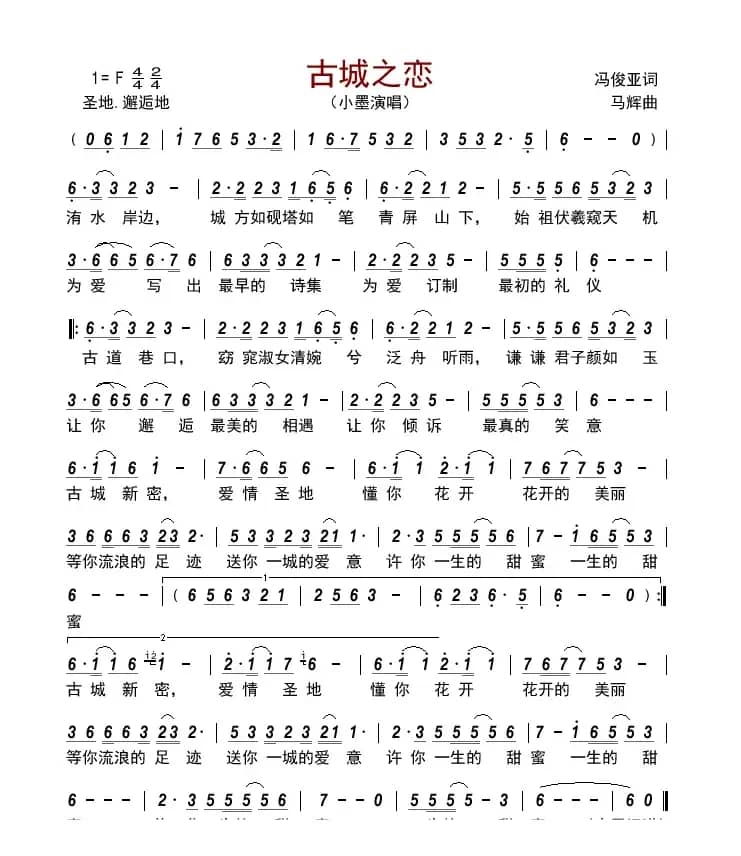 古城之恋
1=F 4/4 2/4
冯俊亚词
圣地.邂逅地
（小墨演唱）
马辉曲
( 0 6 1 2 | 1 7 6 5 3 3·2 | 1 6·7 5 3 2 | 3 5 3 2· 5 | 6 - - 0 ) |
6·3 3 2 3 - | 2·2 2 3 1 6 5 6 | 6·2 2 1 2 - | 5·5 5 6 5 3 2 3 |
洧水岸边， 城方如砚塔如笔 青屏山下， 始祖伏羲窥天机
3·6 6 5 6·7 6 | 6 3 3 3 2 1 - | 2·2 2 3 5 - | 5 5 5 5 6 - |
为爱 写出 最早的 诗集 为爱 订制 最初的礼仪
‖: 6·3 3 2 3 - | 2·2 2 3 2 1 6 5 6 | 6·2 2 1 2 - | 5·5 5 6 5 3 2 3 |
古道巷口， 窈窕淑女清婉兮 泛舟听雨， 谦谦君子颜如玉
3·6 6 5 6·7 6 | 6 3 3 3 2 1 - | 2·2 2 3 5 - | 5 5 5 5 3 6 - |
让你 邂逅 最美的 相遇 让你 倾诉 最真的 笑意
6·1 1 6 1 - | 7·6 6 5 6 - | 6·1 1 2·1 1 | 7 6 7 7 5 3 - |
古城新密， 爱情圣地 懂你 花开 花开的 美丽
3 6 6 6 3 2 3 2· | 5 3 3 2 3 2 1 1· | 2·3 5 5 5 5 6 | 7 - 1 6 5 5 3 |
等你流浪的足迹 送你一城的爱意 许你一生的甜蜜 一生的甜
1
6 - - - | ( 6 5 6 3 2 1 | 2 5 6 3 - | 6 2 3 6· 5 | 6 - - 0 ) :‖
蜜
2
6·1 1 6 1 - | 2·1 1 7 6 - | 6·1 1 2·1 1 | 7 6 7 7 5 3 - |
古城新密， 爱情圣地 懂你 花开 花开的 美丽
3 6 6 6 3 2 3 2· | 5 3 3 2 3 2 1 1· | 2·3 5 5 5 5 6 | 7 - 1 6 5 5 3 |
等你流浪的足迹 送你一城的爱意 许你一生的甜蜜 一生的甜
6 - - - | 2·3 5 5 5 5 6 | 7 - - 0 | 5 5 5 5 - 3 | 6 - - - | 6 0 ‖